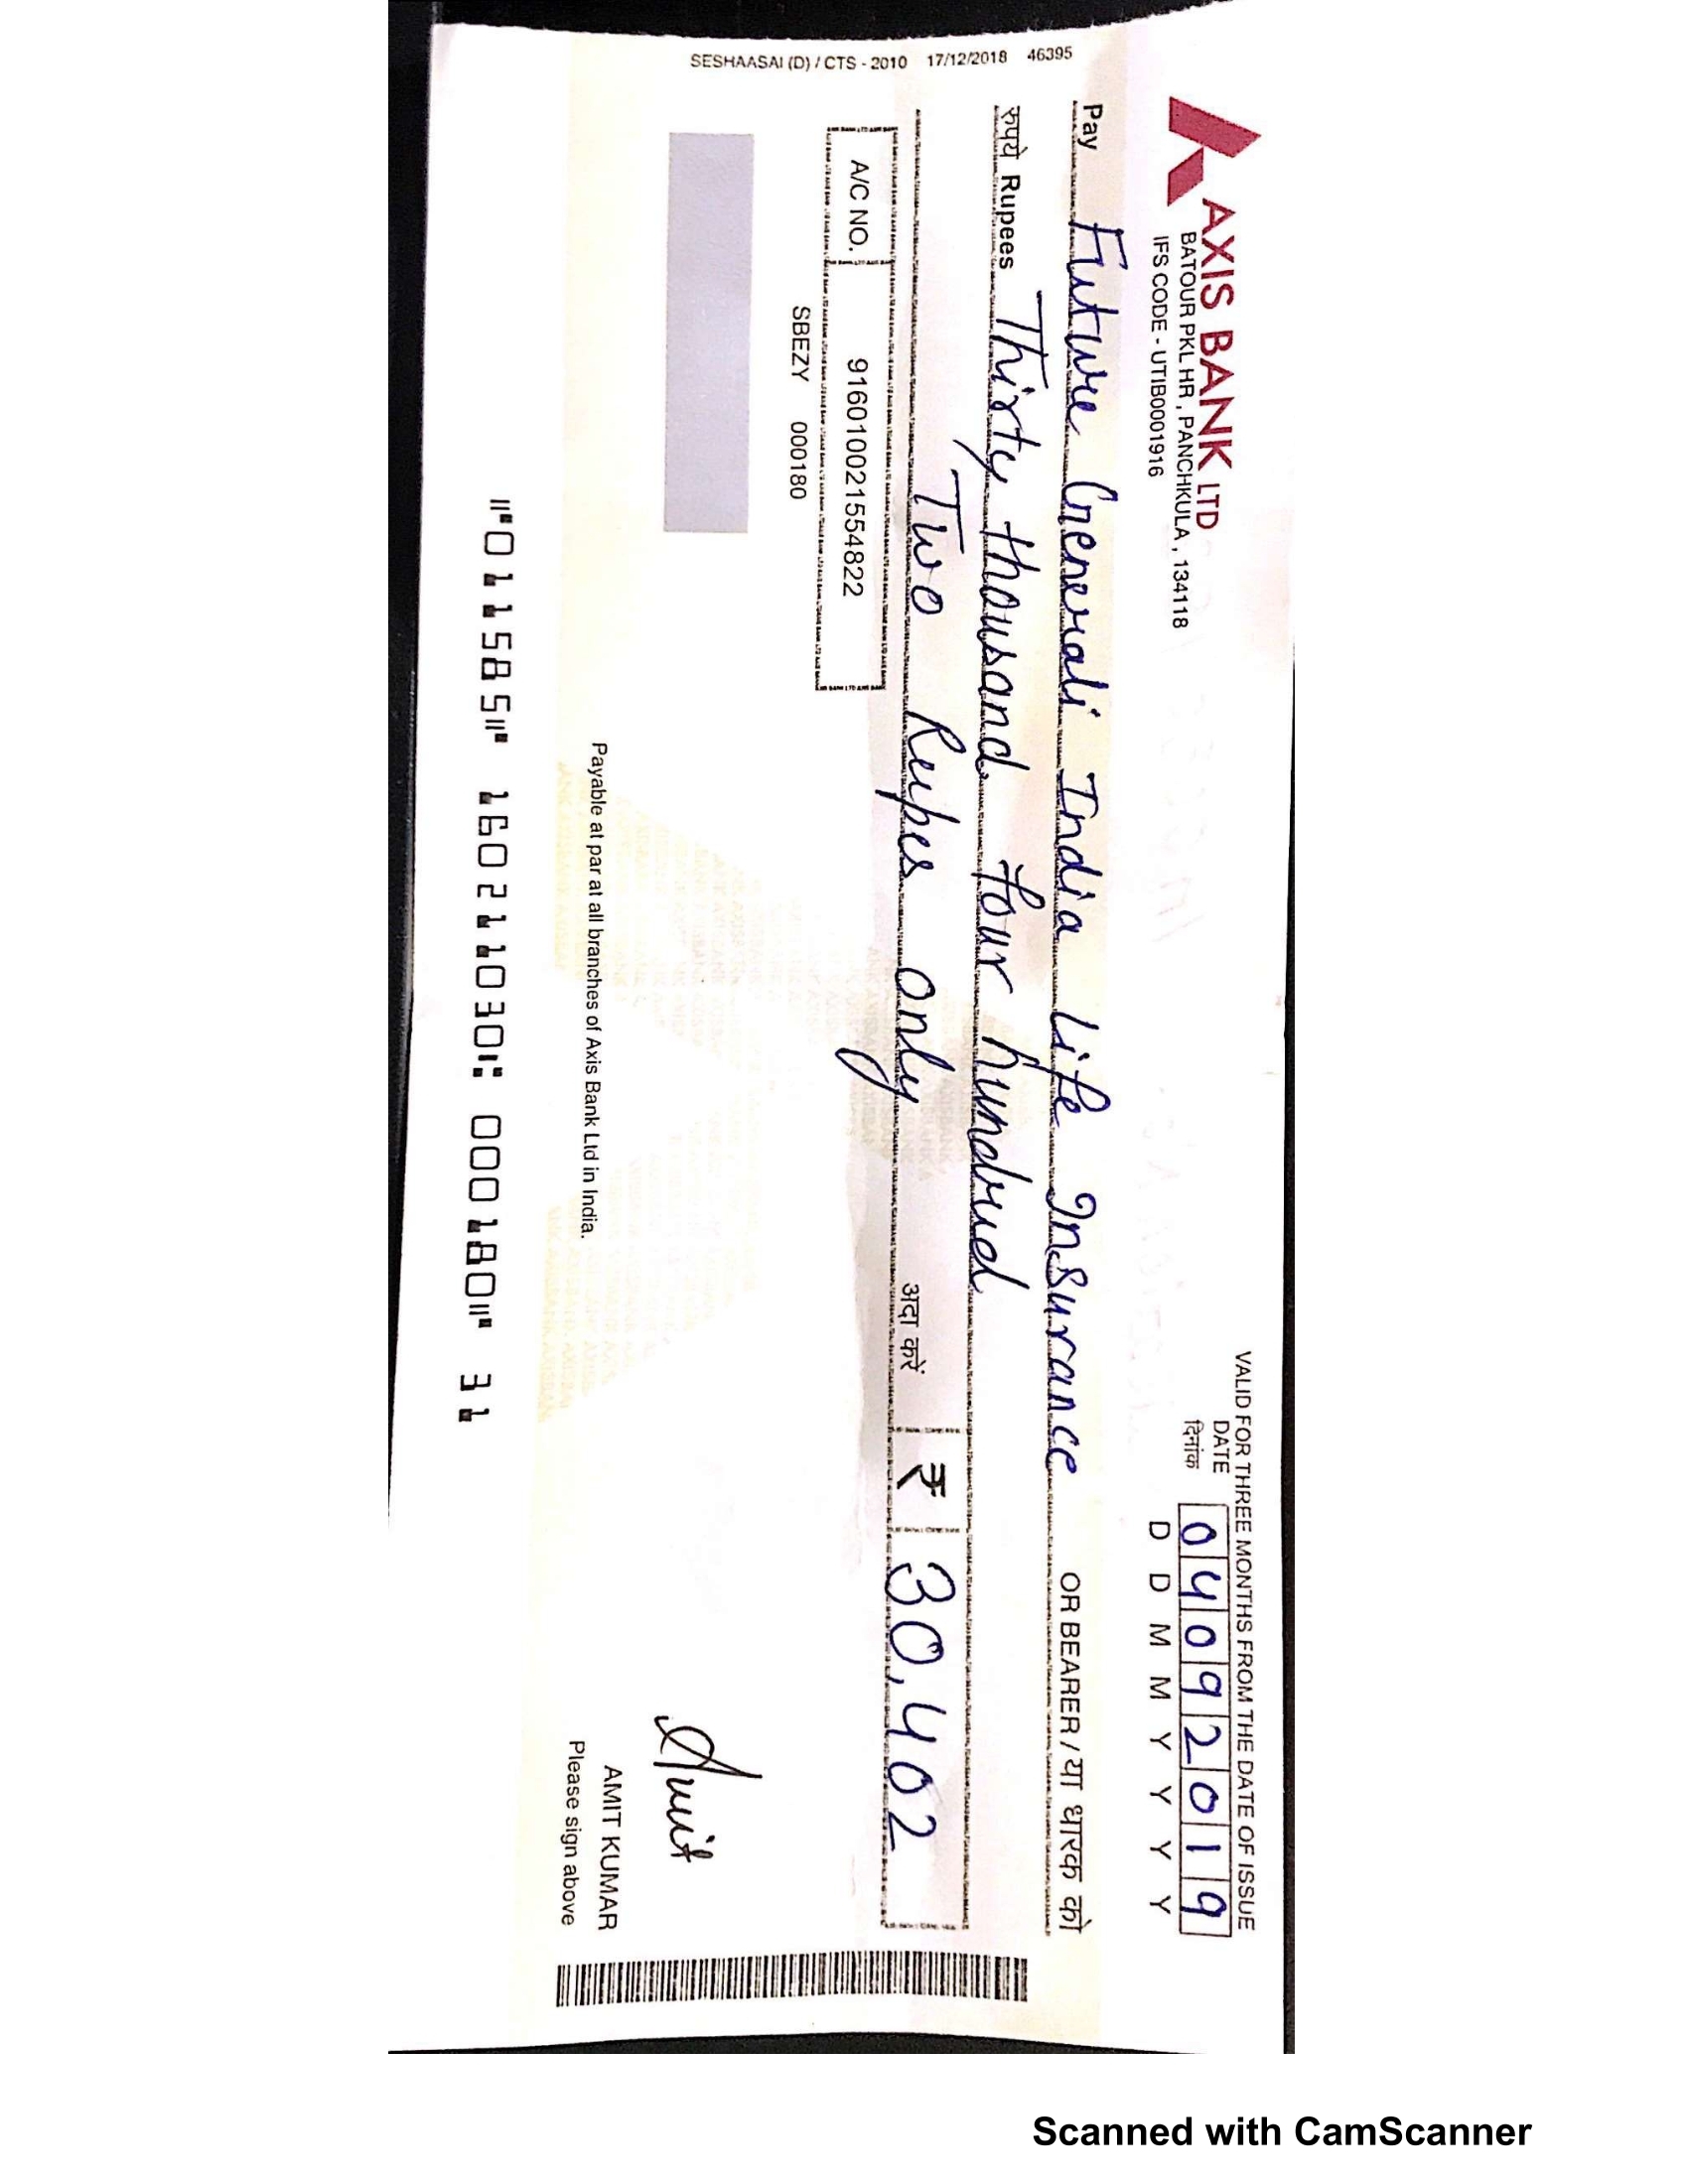 AXIS BANK LTD
BATOUR PKL HR , PANCHKULA , 134118
IFS CODE - UTIB0001916
VALID FOR THREE MONTHS FROM THE DATE OF ISSUE
DATE
दिनांक
0 4 0 9 2 0 1 9
D D M M Y Y Y Y
Pay Future Generali India Life Insurance OR BEARER / या धारक को
रुपये Rupees Thirty thousand four hundred
Two Rupes only अदा करें ₹ 30,402
A/C NO. 916010021554822
SBEZY 000180
Amit
AMIT KUMAR
Please sign above
Payable at par at all branches of Axis Bank Ltd in India.
⑈011585⑈ 160211030⑆ 000180⑈ 31
SESHAASAI (D) / CTS - 2010 17/12/2018 46395
Scanned with CamScanner